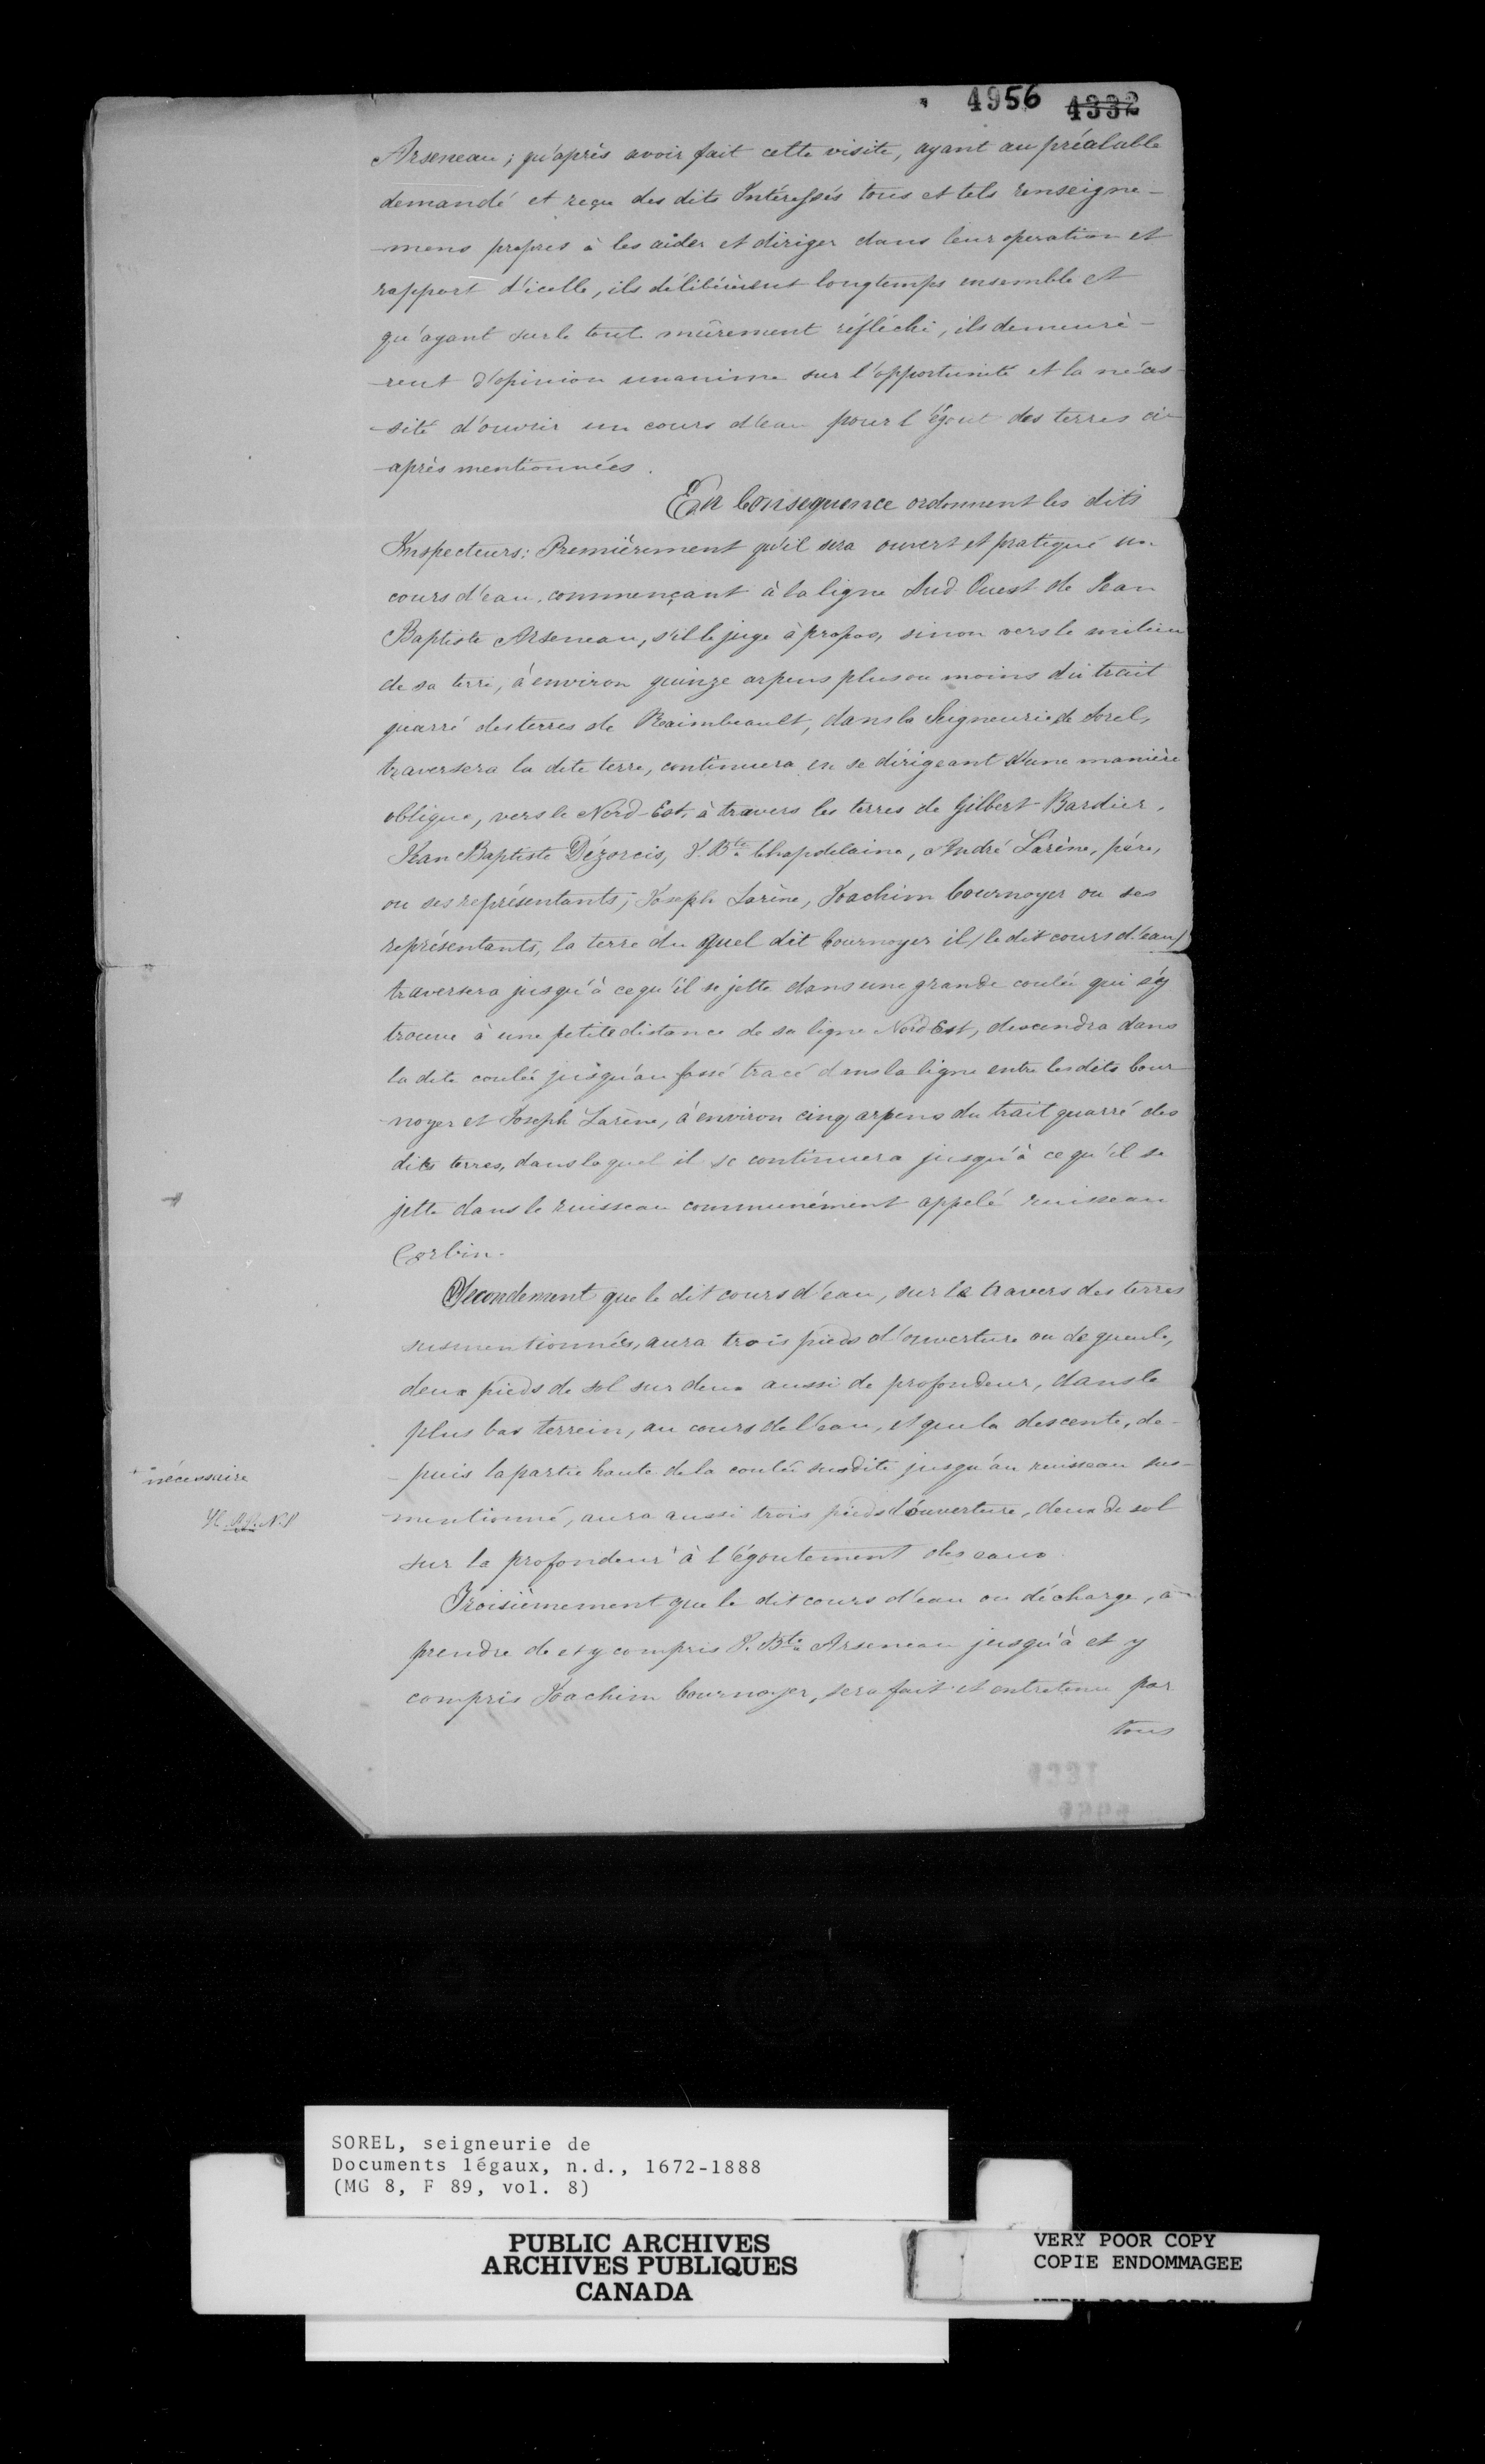 4956 4332
Arseneau; qu'après avoir fait cette visite, ayant au préalable
demandé et reçu des dits Intéressés tous et tels renseigne-
-mens propres à les aider et diriger dans leur operation et
rapport d'icelle, ils délibérèrent longtemps ensemble et
qu'ayant sur le tout mûrement réfléchi, ils demeurè-
-rent d'opinion unanime sur l'opportunité et la néces-
-sité d'ouvrir un cours d'eau pour l'égout des terres ci-
-après mentionnées.
En Consequence ordonnent les dits
Inspecteurs: Premièrement qu'il sera ouvert et pratiqué un
cours d'eau, commençant à la ligne Sud Ouest de Jean
Baptiste Arseneau, s'il le juge à propos, sinon vers le milieu
de sa terre, à environ quinze arpens plus ou moins du trait
quarré des terres de Raimbeault, dans la Seigneurie de Sorel,
traversera la dite terre, continuera en se dirigeant d'une manière
oblique, vers le Nord-Est, à travers les terres de Gilbert Bardier,
Jean Baptiste Dézorcis, J. Bte Chapdelaine, André Larène, père,
ou ses représentants; Joseph Larène, Joachim Cournoyer ou ses
représentants, la terre du quel dit Cournoyer il /le dit cours d'eau/
traversera jusqu'à ce qu'il se jette dans une grande coulée qui s'y
trouve à une petite distance de sa ligne Nord Est, descendra dans
la dite coulée jusqu'au fossé tracé dans la ligne entre les dits Cour-
-noyer et Joseph Larène, à environ cinq arpens du trait quarré des
dites terres, dans lequel il se continuera jusqu'à ce qu'il se
jette dans le ruisseau communément appelé ruisseau
Corbin.
Secondement que le dit cours d'eau, sur le travers des terres
susmentionnées, aura trois pieds d'ouverture ou de gueule,
deux pieds de sol sur deux aussi de profondeur, dans le
plus bas terrein, au cours de l'eau, et que la descente, de-
-puis la partie haute de la coulée susdite jusqu'au ruisseau sus-
-mentionné, aura aussi trois pieds d'ouverture, deux de sol
sur la profondeur + à l'égoutement des eaux.
+ nécessaire
Troisièmement que le dit cours d'eau ou décharge, à
prendre de et y compris J. Bte Arseneau jusqu'à et y
compris Joachim Cournoyer, sera fait et entretenu par
tous
SOREL, seigneurie de
Documents légaux, n.d., 1672-1888
(MG 8, F 89, vol. 8)
PUBLIC ARCHIVES
ARCHIVES PUBLIQUES
CANADA
VERY POOR COPY
COPIE ENDOMMAGEE
VERY POOR COPY